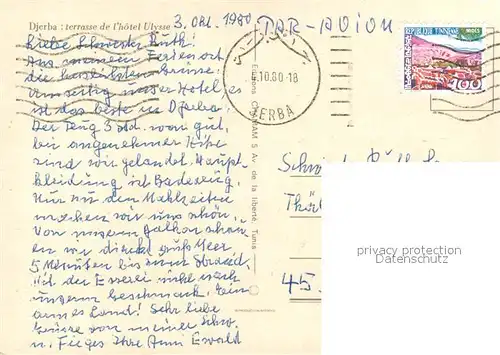 Djerba : terrasse de l'hôtel Ulysse
3. Okt. 1980 PAR-AVION
REPUBLIQUE TUNISIENNE
MIDES
100
10.80-18
JERBA
Liebe Schwester Ruth!
Aus meinem Ferienort
die herzlichsten Grüsse!
Umseitig unser Hotel, es
ist das beste in Djerba!
Der Flug 3 Std. war gut,
bei angenehmer Hitze
sind wir gelandet. Haupt-
kleidung ist Badezeug.
Nur zu den Mahlzeiten
machen wir uns schön.
Von unserm Balkon schau-
en wir direkt aufs Meer,
5 Minuten bis zum Strand,
ist das Essen nicht nach
unserm Geschmack. Ein
armes Land! Sehr liebe
Grüsse von meiner Schw.
u. Ihre Anni Ewald
Editions CHAMAM 5 Av. de la liberté, Tunis
45.
privacy protection
Datenschutz